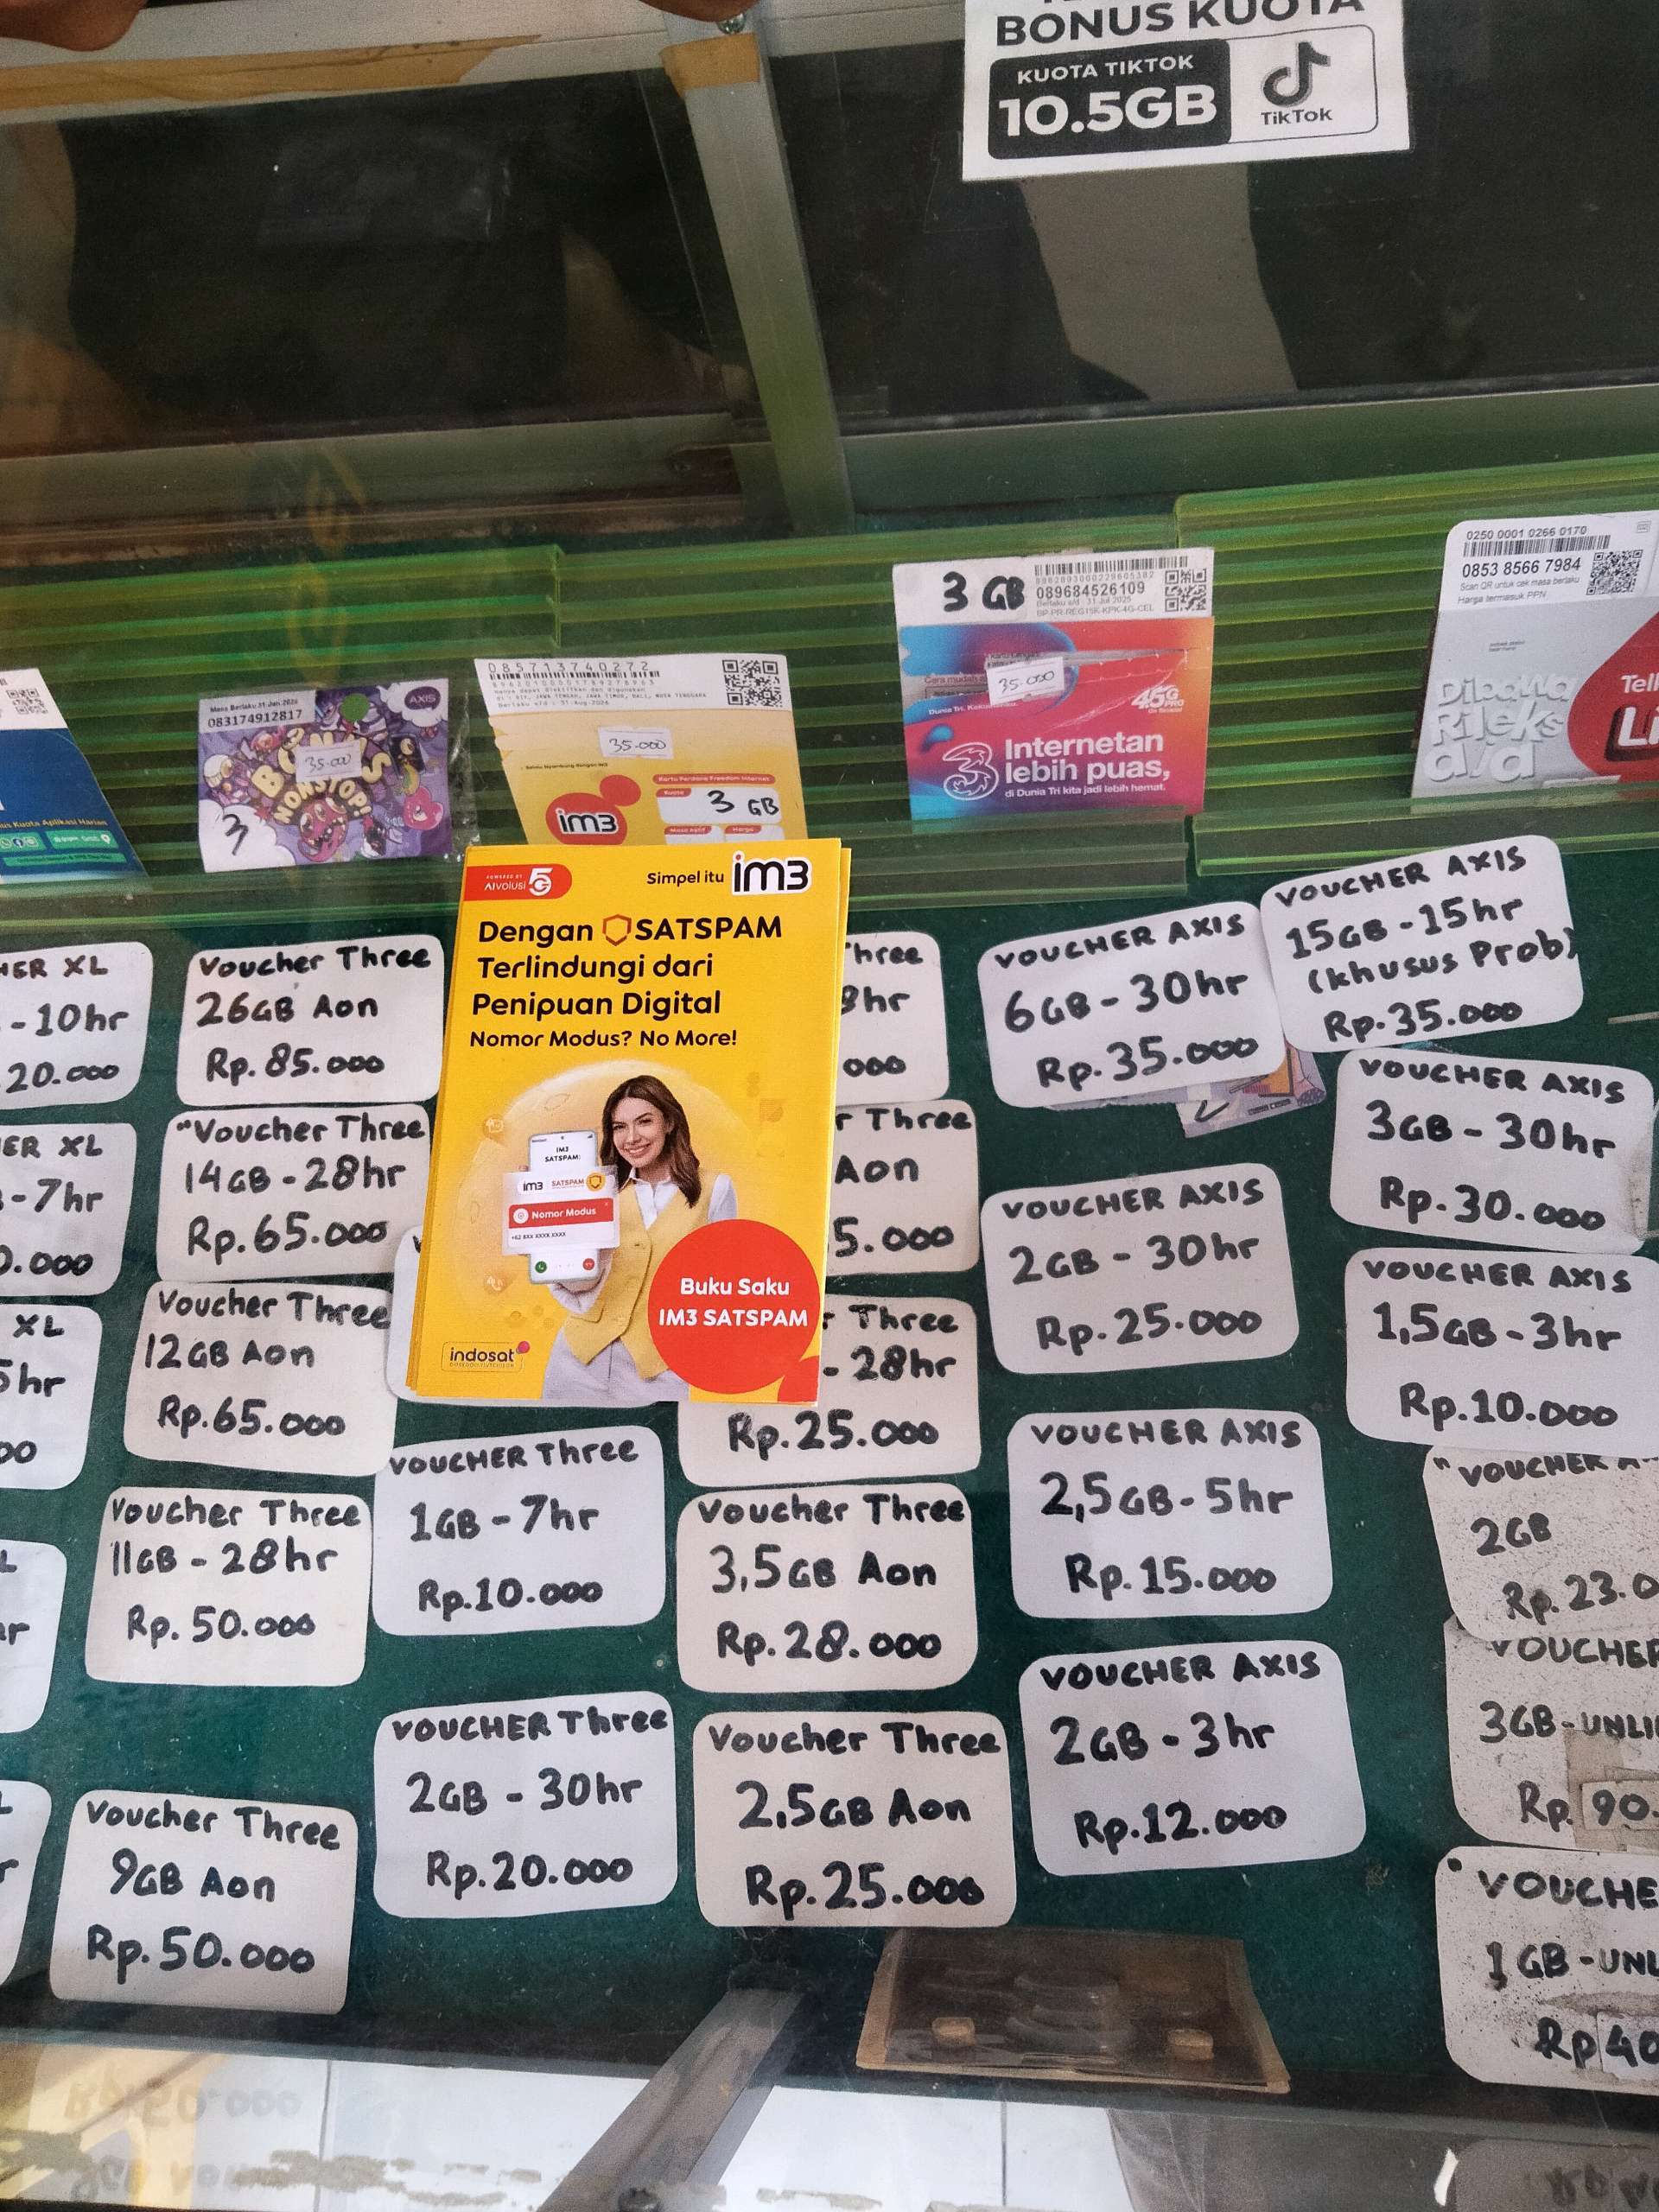 BONUS KUOTA
KUOTA TIKTOK
10.5GB
TikTok
0250 0001 0266 0170
0853 8566 7984
Scan QR untuk cek masa berlaku
Harga termasuk PPN
Dibawa
Rileks
aja
3 GB
089684526109
Berlaku s/d : 31 Jul 2025
BP-PR-REG19K-KPK-4G-CEL
35.000
4.5G
PRO
3 Internetan
lebih puas,
di Dunia Tri kita jadi lebih hemat.
085713740272
35.000
Kartu Perdana Freedom Internet
Kuota
3 GB
Masa Aktif
Harga
im3
Masa Berlaku 31 Jan 2026
083174912817
AXIS
35.000
BONUS
NONSTOP!
3
us Kuota Aplikasi Harian
POWERED BY
AIvolusi 5G
Simpel itu im3
Dengan SATSPAM
Terlindungi dari
Penipuan Digital
Nomor Modus? No More!
IM3
SATSPAM:
im3 SATSPAM
Nomor Modus
+62 8XX XXXX XXXX
Buku Saku
IM3 SATSPAM
indosat
OOREDOO HUTCHISON
XL
- 10hr
20.000
XL
- 7hr
0.000
XL
hr
Voucher Three
26GB Aon
Rp. 85.000
"Voucher Three
14GB - 28hr
Rp. 65.000
Voucher Three
12GB Aon
Rp. 65.000
Voucher Three
11GB - 28hr
Rp. 50.000
Voucher Three
9GB Aon
Rp. 50.000
VOUCHER Three
1GB - 7hr
Rp. 10.000
VOUCHER Three
2GB - 30hr
Rp. 20.000
Three
hr
000
Three
Aon
5.000
Three
- 28hr
Rp. 25.000
Voucher Three
3,5GB Aon
Rp. 28.000
Voucher Three
2,5GB Aon
Rp. 25.000
VOUCHER AXIS
6GB - 30hr
Rp. 35.000
VOUCHER AXIS
2GB - 30hr
Rp. 25.000
VOUCHER AXIS
2,5GB - 5hr
Rp. 15.000
VOUCHER AXIS
2GB - 3hr
Rp. 12.000
VOUCHER AXIS
15GB - 15hr
(khusus Prob)
Rp. 35.000
VOUCHER AXIS
3GB - 30hr
Rp. 30.000
VOUCHER AXIS
1,5GB - 3hr
Rp. 10.000
"VOUCHER
2GB
Rp. 23.0
VOUCHER
3GB - UNLI
Rp. 90.
VOUCHE
1GB - UNL
Rp 40